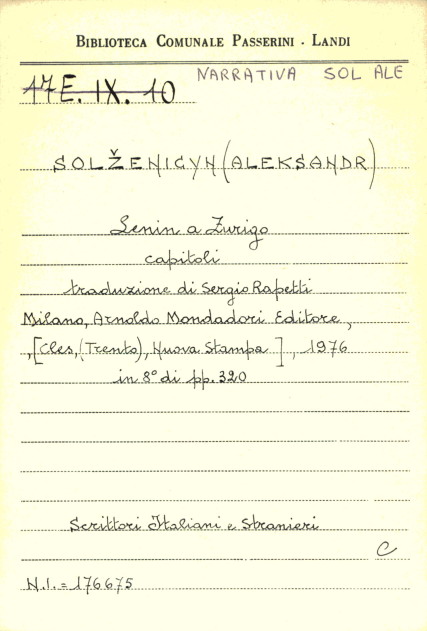 BIBLIOTECA COMUNALE PASSERINI - LANDI
NARRATIVA SOL ALE
17E.IX.10
SOLŽENICYN (ALEKSANDR)
Lenin a Zurigo
capitoli
traduzione di Sergio Rapetti
Milano, Arnoldo Mondadori Editore,
,[Cles,(Trento), Nuova Stampa], 1976
in 8° di pp. 320
Scrittori Italiani e Stranieri
C
N.I.= 176675